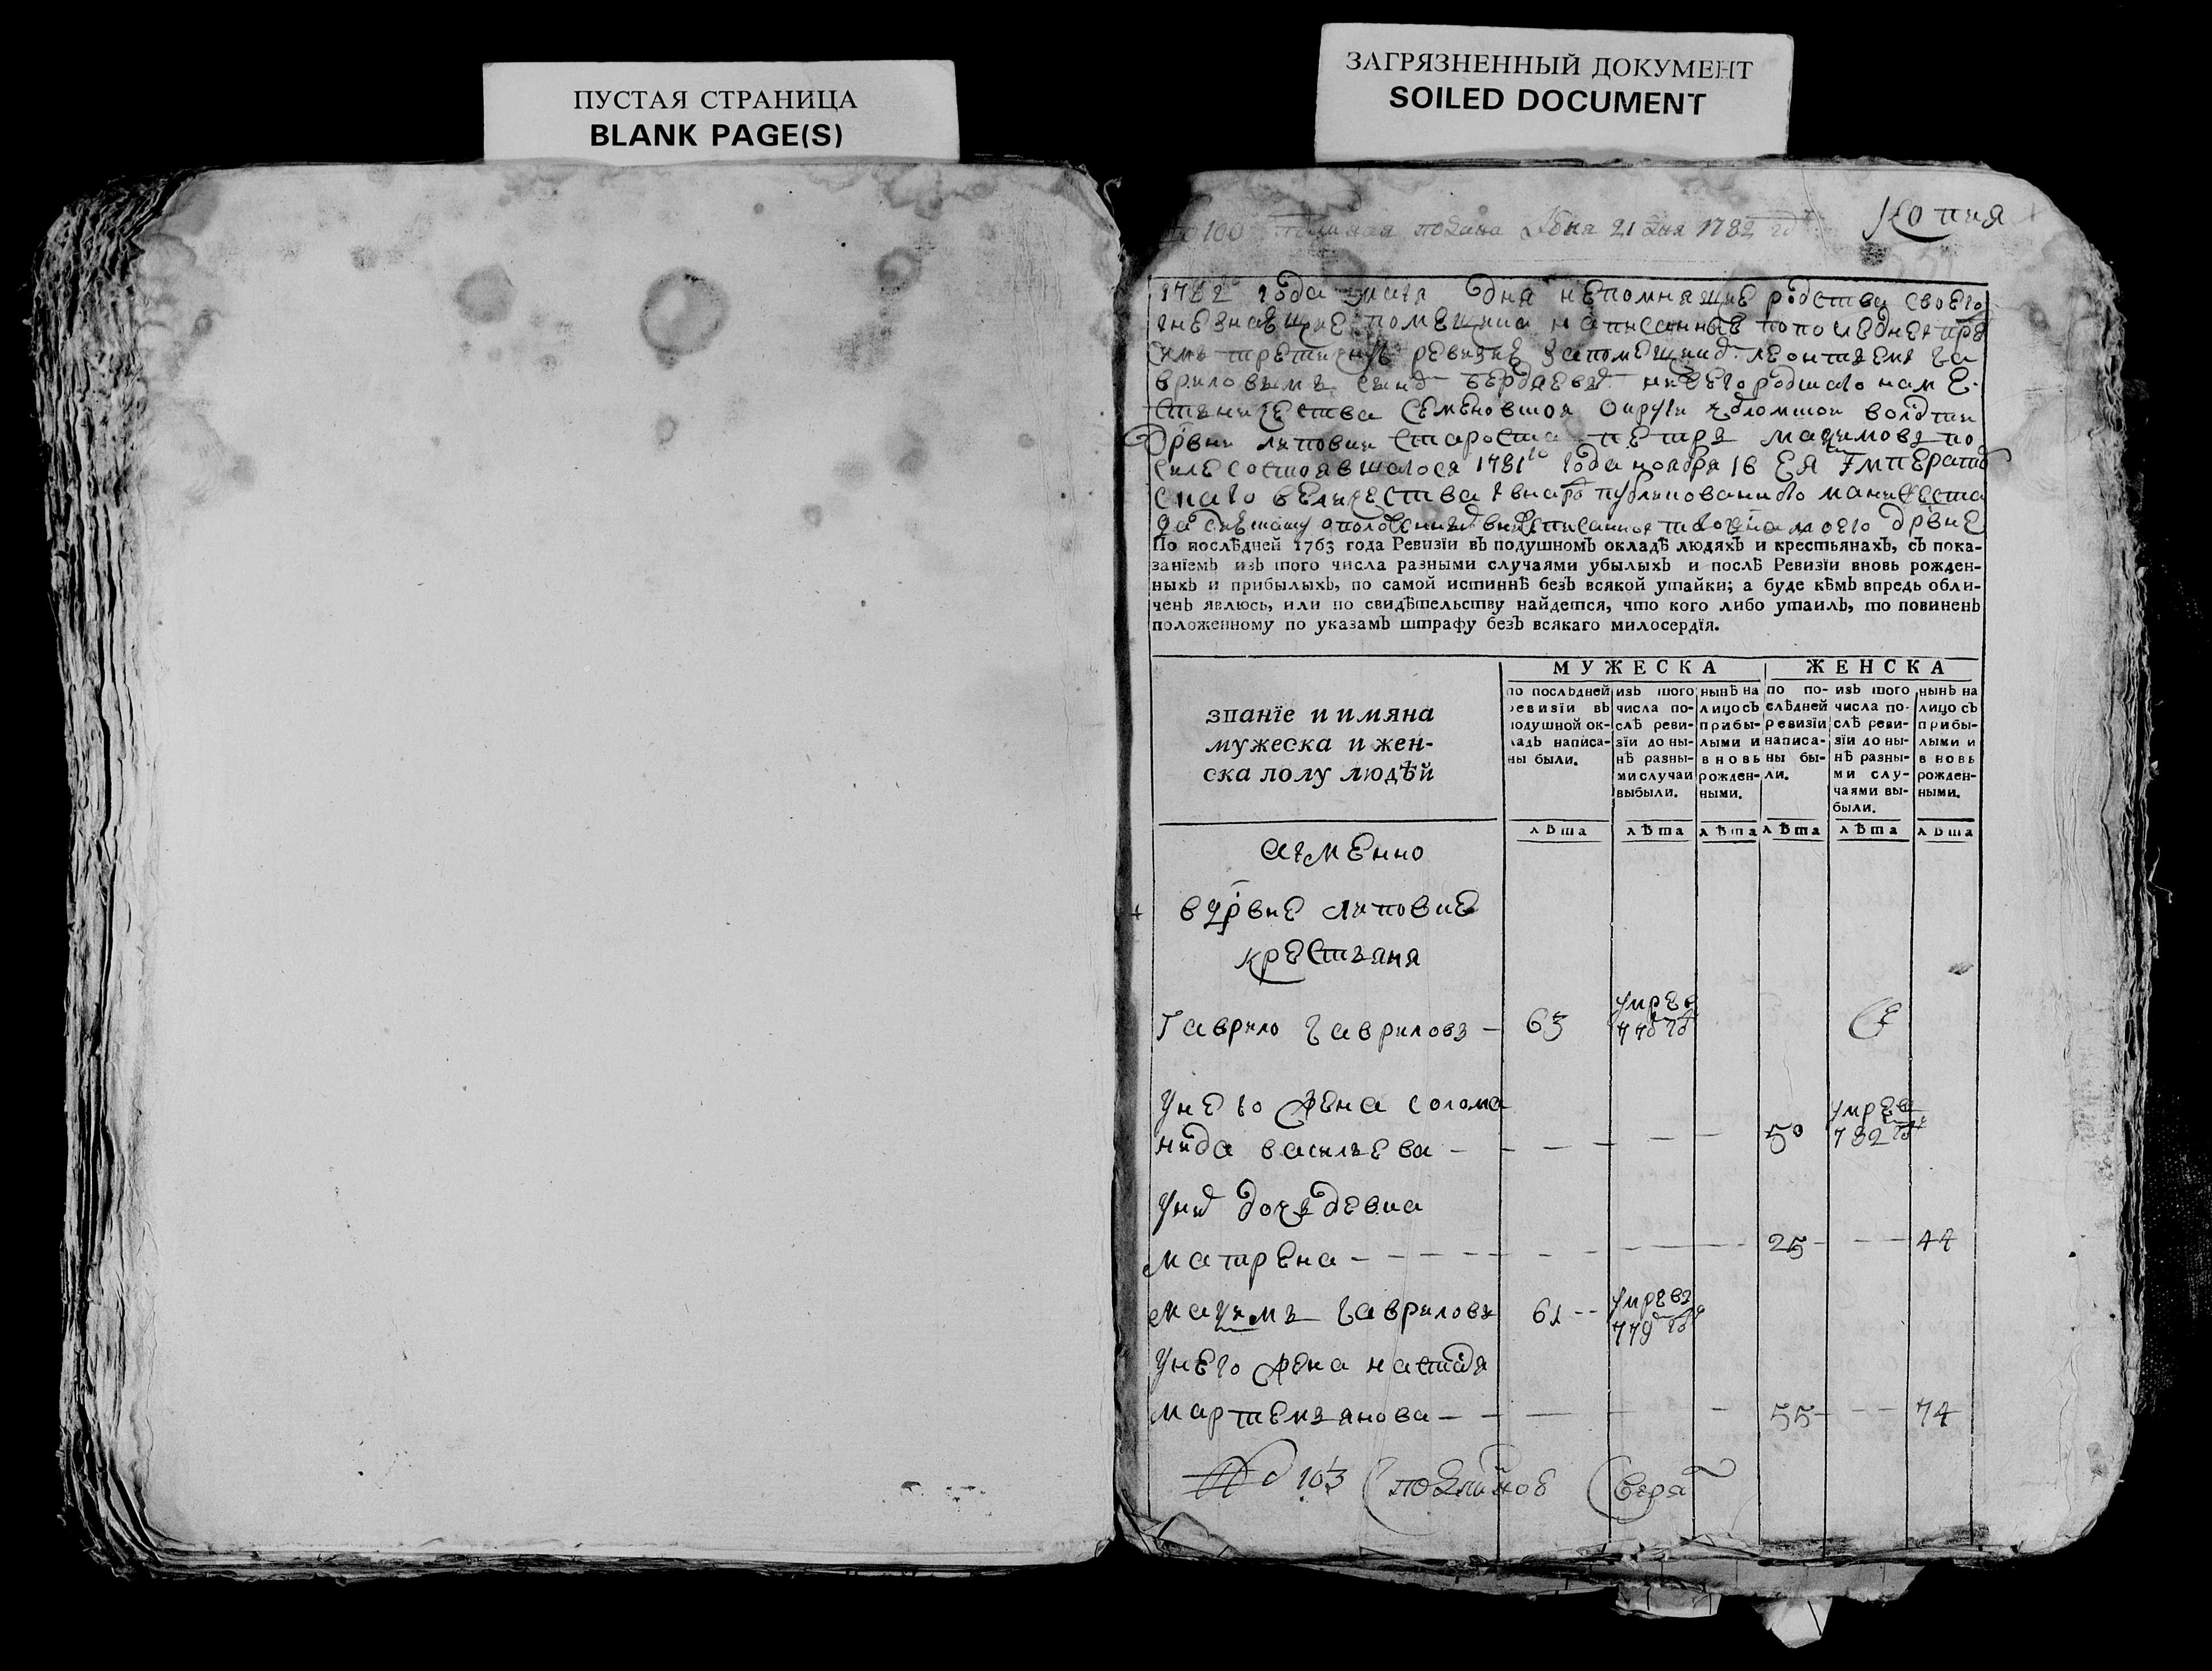 ПУСТАЯ СТРАНИЦА
BLANK PAGE(S)
ЗАГРЯЗНЕННЫЙ ДОКУМЕНТ
SOILED DOCUMENT
100 подана Июня 21 дня 1782 го
Копия
1782 года маія дня непомнящие родства своего
инезнающие помещика написанные попоследнеи пре
треттеи ревизие запомещиком леонтьем га
вриловым нижегородцкаго наме
стничества семеновской округи волости
дрвни липовки староста петръ мазимовъ по
силе состоявшагося 1781го года ноября 16 ея император
скаго величества публикованного манифеста
дрвне
По послѣдней 1763 года Ревизїи въ подушномъ окладѣ людяхъ и крестьянахъ, съ пока-
занїемъ изъ того числа разными случаями убылыхъ и послѣ Ревизїи вновь рожден-
ныхъ и прибылыхъ, по самой истиннѣ безъ всякой утайки; а буде кѣмъ впредь обли-
ченъ явлюсь, или по свидѣтельству найдется, что кого либо утаилъ, то повиненъ
положенному по указамъ штрафу безъ всякаго милосердїя.
званїе и имяна
мужеска и жен-
ска полу людѣй
МУЖЕСКА
ЖЕНСКА
по послѣдней
ревизїи въ
подушной ок-
ладъ написа-
ны были.
изъ того
числа по-
слѣ реви-
зїи до ны-
нѣ разны-
ми случаи
выбыли.
нынѣ на
лицо съ
прибы-
лыми и
вновь
рожден-
ными.
по по-
слѣдней
ревизїи
написа-
ны бы-
ли.
изъ того
числа по-
слѣ реви-
зїи до ны-
нѣ разны-
ми слу-
чаями вы-
были.
нынѣ на
лицо съ
прибы-
лыми и
вновь
рожден-
ными.
лѣта лѣта лѣта лѣта лѣта лѣта
аименно
вдрвне липовке
крестьяня
Гаврило Гавриловъ - 63 умре в
Унего жена солома
нида васильева - 50 умре в 782 го
Уних дочь девка
матрена - 25 - 44
мазимъ Гавриловъ 61 - умре въ 779 го
Унего жена настася
мартемьянова - 55 - 74
103 подлинной